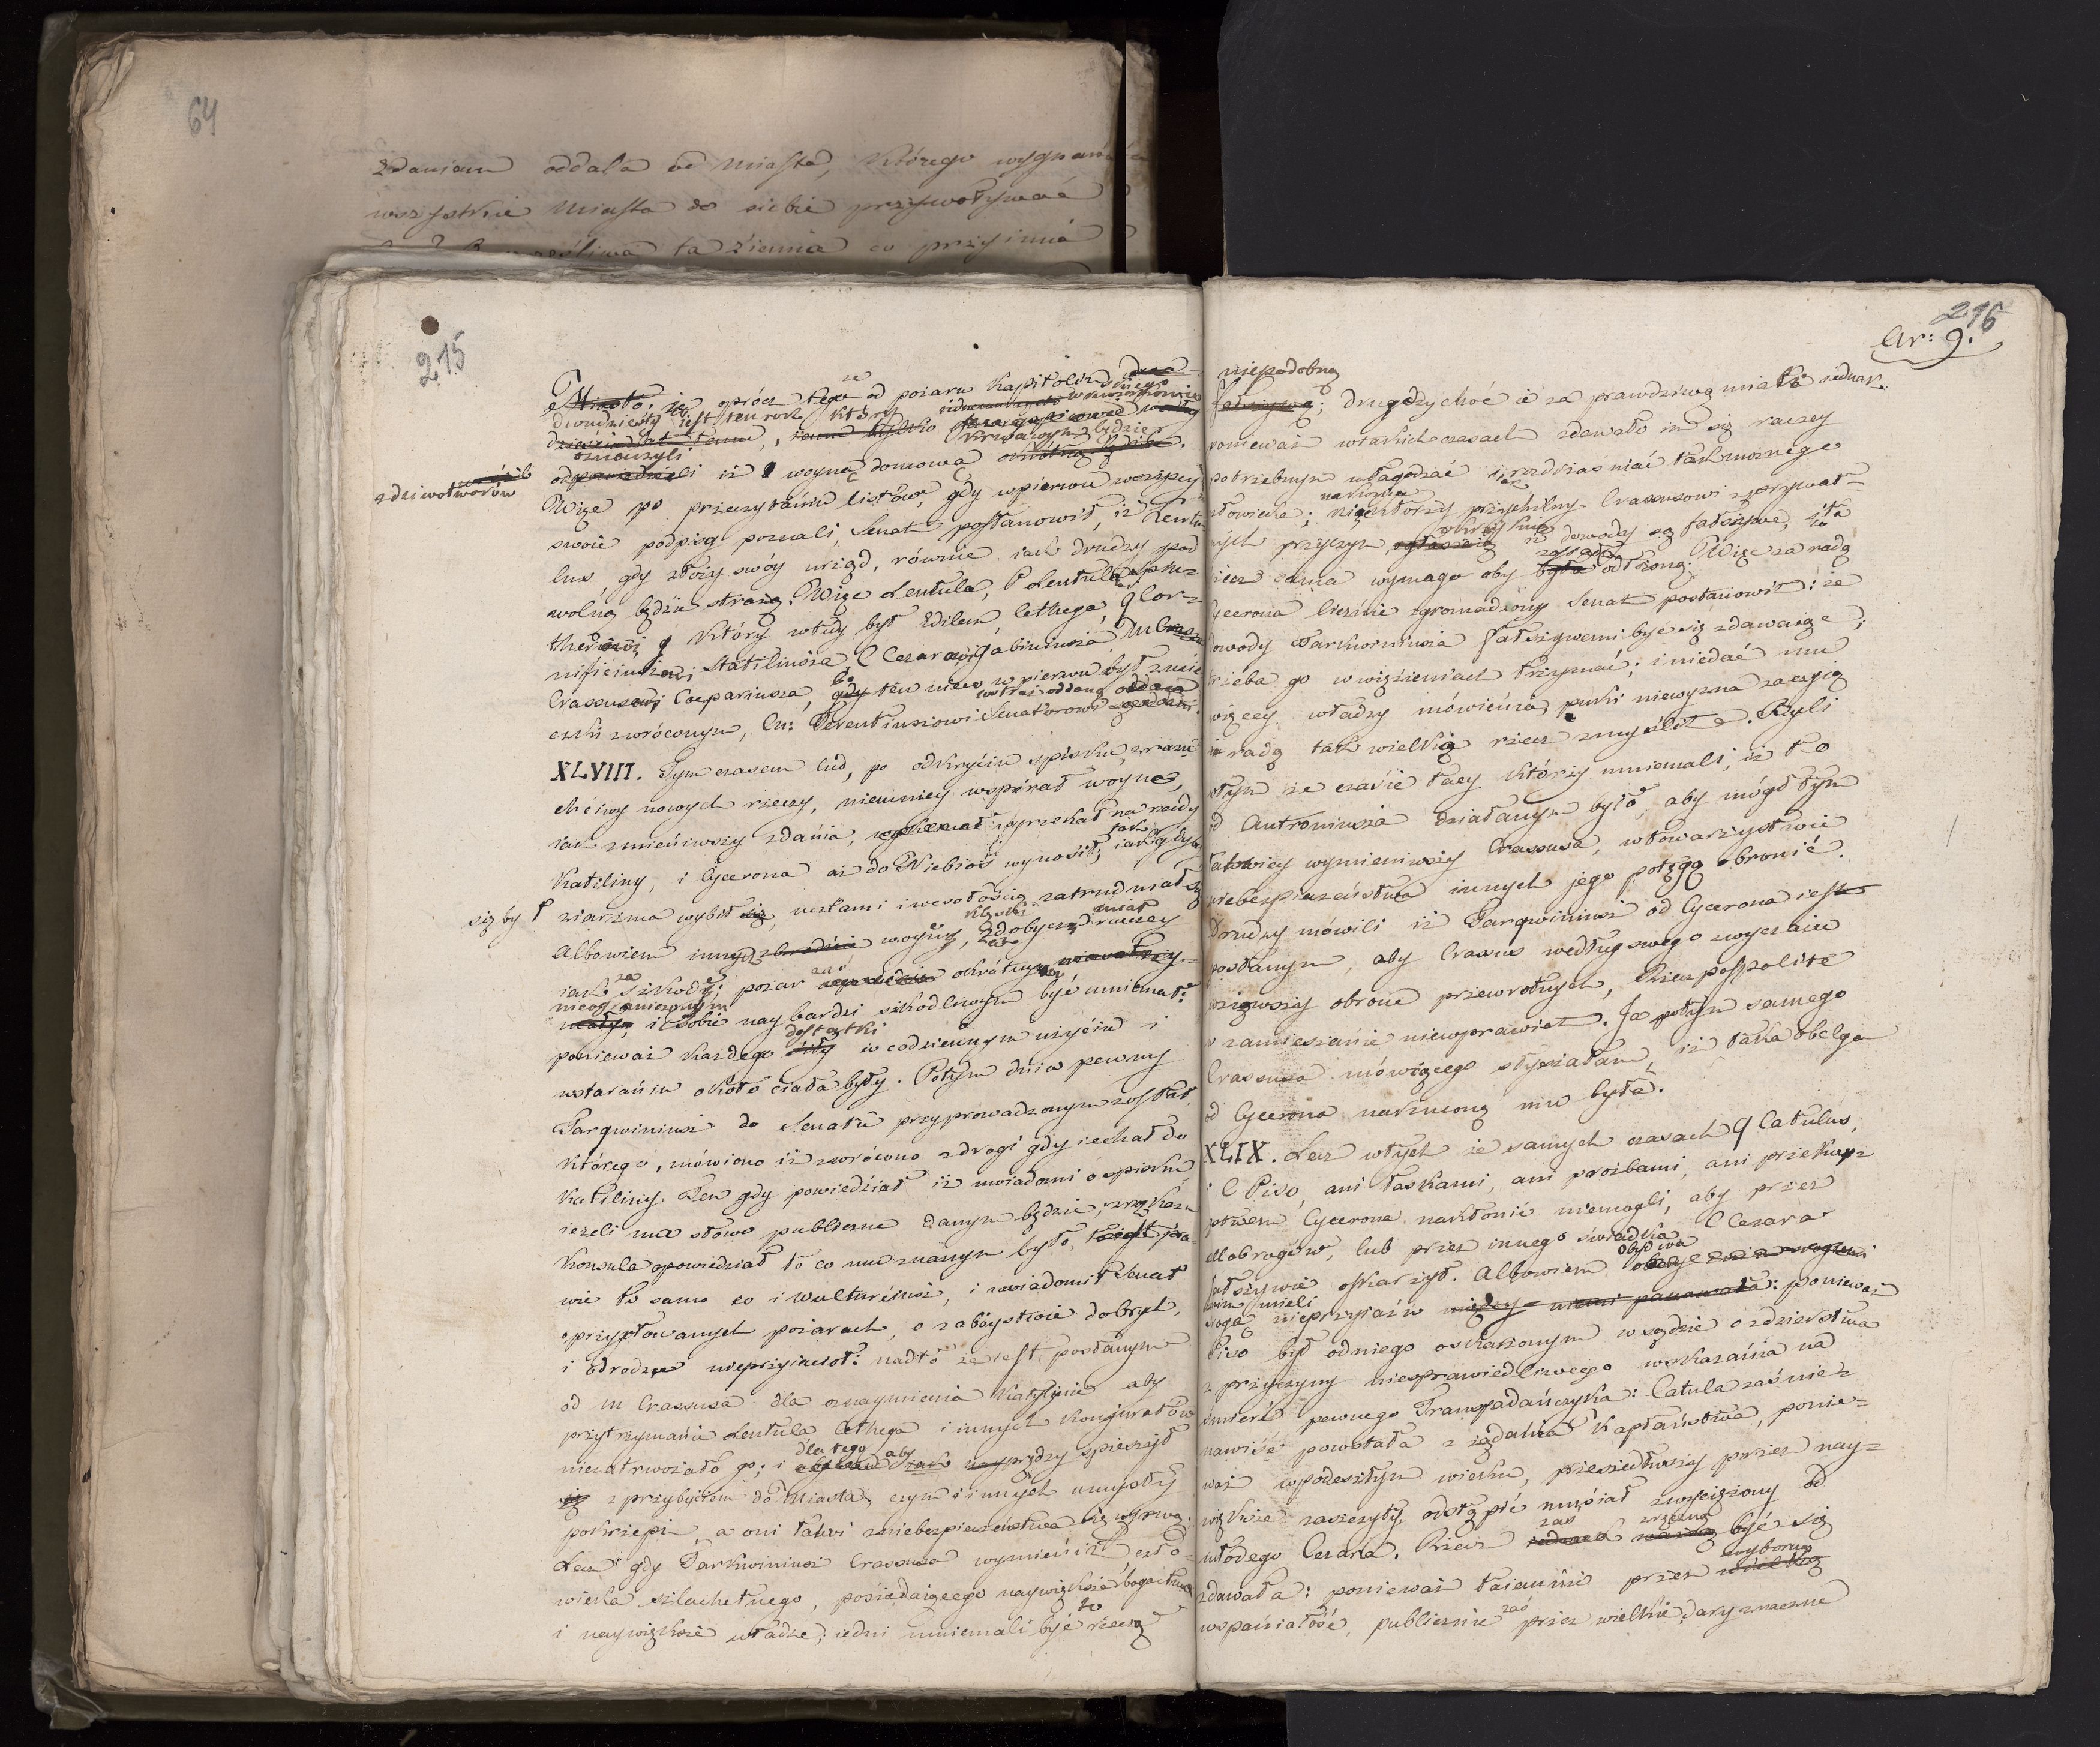 64
zdaniem oddala od Miasta, którego wygnańca
wszystkie Miasta do siebie przyzwoływać
ta Ziemia co przyimie
215
Miasto; oprócz tego że od pożaru Kapitolińskiego
dwudziesty iest ten rok, który
dziesięć lat temu,
oznaczyli krwawym będzie
odpowiedzieli iż woyną domową okrótny będzie.
z dziwotworów
Więc po przeczytaniu listów, gdy wpierwu wszyscy
swoie podpisy poznali, Senat postanowił, iż Lentu
lus gdy złoży swóy urząd, równie iak drudzy pod
wolną będzie strażą. Więc Lentula, P Lentula Spin-
therowi, który wtedy był Edilem, Cethega, Q Cor-
nificiusowi Statiliusza, C Cezarowi, Gabiniusza, M Crassu
Crassusowi Coepariusza, bo ten nieco wpierwu był z ucie
czki zwróconym, Cn: Terentiusiowi Senatorowi
XLVIII. Tym czasem lud, po odkryciu spisku, zrazu
chciwy nowych rzeczy, niemniey wspierał woynę,
iak zmieniwszy zdania, przeklinał na rady
Katiliny, i Cycerona aż do Niebios wynosił; tak iak gdyby
się by ł z iarzma wybił się, ucztami i wesołością zatrudniał się
Albowiem inny zbrodnie woyny, zdobycz raczey miał
iak za szkodę; pożar zaś okrótny
nieogranicznym i sobie naybardzi szkodliwym być mniemał:
ponieważ każdego dostatki siły w codziennym użyciu i
wstaraniu około ciała były. Potym dnia pewny
Tarqwiniusz do Senatu przyprowadzonym został
którego, mówiono iż zwrócono z drogi gdy iechał do
Katiliny. Ten gdy powiedział iż uwiadomi o spisku
ieżeli mu słowo publiczne danym będzie; z rozkazu
Konsula opowiedział to co mu znanym było, to iest pra-
wie to samo co i Wulturciusz, i uwiadomił Senat
o przypłowanych pożarach, o zabóystwie dobrych,
i o drodze nieprzyiaciół: nadto że iest posłanym
od M Crassusa dla oznaymienia Katylinie aby
przytrzymanie Lentula Cethega i innych Konjuratów
niezatrwożało go; i dla tego aby prędzy spieszył
się z przybyciem do Miasta, czym i innych umysły
pokrzepi, a oni łatwi z niebezpieczeństwa się wyrwą.
Lecz gdy Tarkwiniusz Crassusa wymienił czło-
wieka szlachetnego, posiadaiącego naywiększe bogactwa
i naywiększe władze; iedni mniemali być to rzeczą
216
Ar: 9.
niepodobną
fałszywą; drudzy choć ie za prawdziwą miali iednak
ponieważ w takich czasach zdawało im się raczey
potrzebnym ułagodzać iak rozdrażniać tak możnego
człowieka; niektórzy przychylny Crassusowi z prywat-
nych przyczyn, okrzyknęli iż dowody są fałszywe, i ta
rzecz sama wymaga aby była odłożoną. Więc za radą
Cycerona licznie zgromadzony Senat postanowił: że
dowody Tarkwiniusza fałszywemi być się zdawaiące;
trzeba go w więzieniach trzymać; i niedać mu
więcey władzy mówienia, puki niewyzna za czyią
on radą tak wielkią rzecz zmyślił. Byli
wtym że czasie tacy którzy mniemali, iż to
od Autroniusza działanym było, aby mógł tym
łatwiey wymieniwszy Crassusa, w towarzystwie
niebezpieczeństwa innych jego potęgą obronić.
Drudzy mówili iż Tarqwiniusz od Cycerona iest
posłanym, aby Crassus według swego zwyczaiu
wziąwszy obronę przewrotnych, Rzeczpospolite
w zamieszanie niewprawiał. Ja potym samego
Crassusa mówiącego słyszałam, iż taka obelga
od Cycerona narzucong mu była.
XLIX. Lecz wtych że samych czasach Q Catulus,
i C Piso, ani łaskami, ani prożbami, ani przekup-
stwem Cycerona nakłonić niemogli, aby przez
Allobrogów, lub przez innego świadka C Cezara
fałszywie oskarżył. Albowiem obydwa
z nim mieli
srogą nieprzyiaźń między niemi panowała: ponieważ
Piso był od niego oskarżonym w sądzie o zdzierstwa
z przyczyny niesprawiedliwego wskazania na
śmierć pewnego Transpadańczyka: Catula zaś nie-
nawiść powstała z żądania Kapłaństwa, ponie-
waż w podeszłym wieku, przeszedłszy przez nay-
większe zaszczyty, odstąpić musiał zwyciężony od
młodego Cezara. Rzecz zaś zręczną być się
zdawała: ponieważ taiemnie przez wyborną wielką
wspaniałość, publicznie zaś przez wielkie dary znaczne